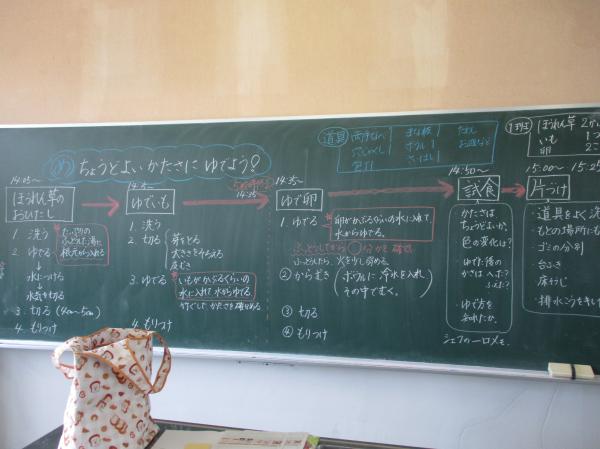 め ちょうどよいかたさに ゆでよう?
道具
両手なべ
まな板
ボウル
1班
ほうれん草
いも
卵
14:05〜
ほうれん草の
おひたし
1. 洗う
2. ゆでる
たっぷりの
ふっとうした湯に
根元から入れる
水につける
水気を切る
3. 切る (4cm〜5cm)
4. もりつけ
ゆでいも
1. 洗う
2. 切る
芽をとる
大きさをそろえる
皮むき
3. ゆでる
いもがかぶるくらいの
水に入れて 水からゆでる。
竹ぐしで かたさを確かめる
4. もりつけ
14:35〜
ゆで卵
1. ゆでる
卵がかぶるくらいの水に入れて、
水からゆでる。
ふっとうしてから 分かを確認
ふっとうしたら、火を少し弱める。
② からむき
ボウルに 冷水を入れ
その中でむく。
③ 切る
④ もりつけ
14:50〜
試食
かたさは
ちょうどよいか。
色の変化は?
・ゆでた後の
かさは へった?
ふえた?
・ゆで方を
シェフの一口メモ
15:00〜 15:25
片づけ
・道具をよく洗
・もとの場所にも
・ゴミの分別
・台ふき
・床そうじ
・排水こうをキレイ